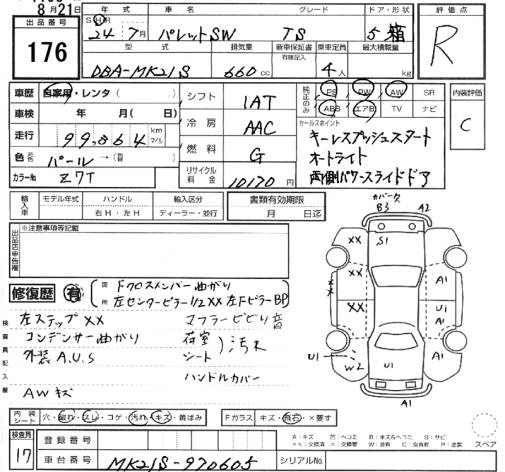 8月21日
出品番号
176
年式 車名 グレード ドア・形状
S H R
24年 7月 パレットSW TS 5 箱
型式 排気量 新車保証書 乗車定員 最大積載量
有限記入
DBA-MK21S 660cc 4人 kg
評価点
R
車歴 自家用・レンタ( )
車検 年 月( )
走行 99,864 km マイル
色 パール →( )
カラーNo Z7T
シフト IAT
冷房 AAC
燃料 G
リサイクル料金 10170円
純正のみ PS PW AW SR
ABS エアB TV ナビ
セールスポイント
キーレスプッシュスタート
オートライト
両側パワースライドドア
内装評価
C
輸入車 モデル年式 ハンドル 輸入区分
右H・左H ディーラー・並行
書類有効期限
月 日迄
※注意事項等記載
修復歴 有
Fクロスメンバー曲がり
左センターピラー1/2XX 左FピラーBP
検査員記入欄
左ステップXX マフラービビリ音
コンデンサー曲がり 荷室
外装A.U.S シート )汚れ
ハンドルカバー
AWキズ
カバー欠
B3 A2
XX S1
A1
XX U1 A1
XX
U1 W2 U1 A1
A1
内装シート 穴・・スレ・コゲ・汚れ・キズ・黄ばみ Fガラス キズ・飛石・×要す
A:キズ 凹:ヘコミ B:キズ&ヘコミ S:サビ
スペア
検査員
17
登録番号
車台番号 MK21S-970605 シリアルNo.